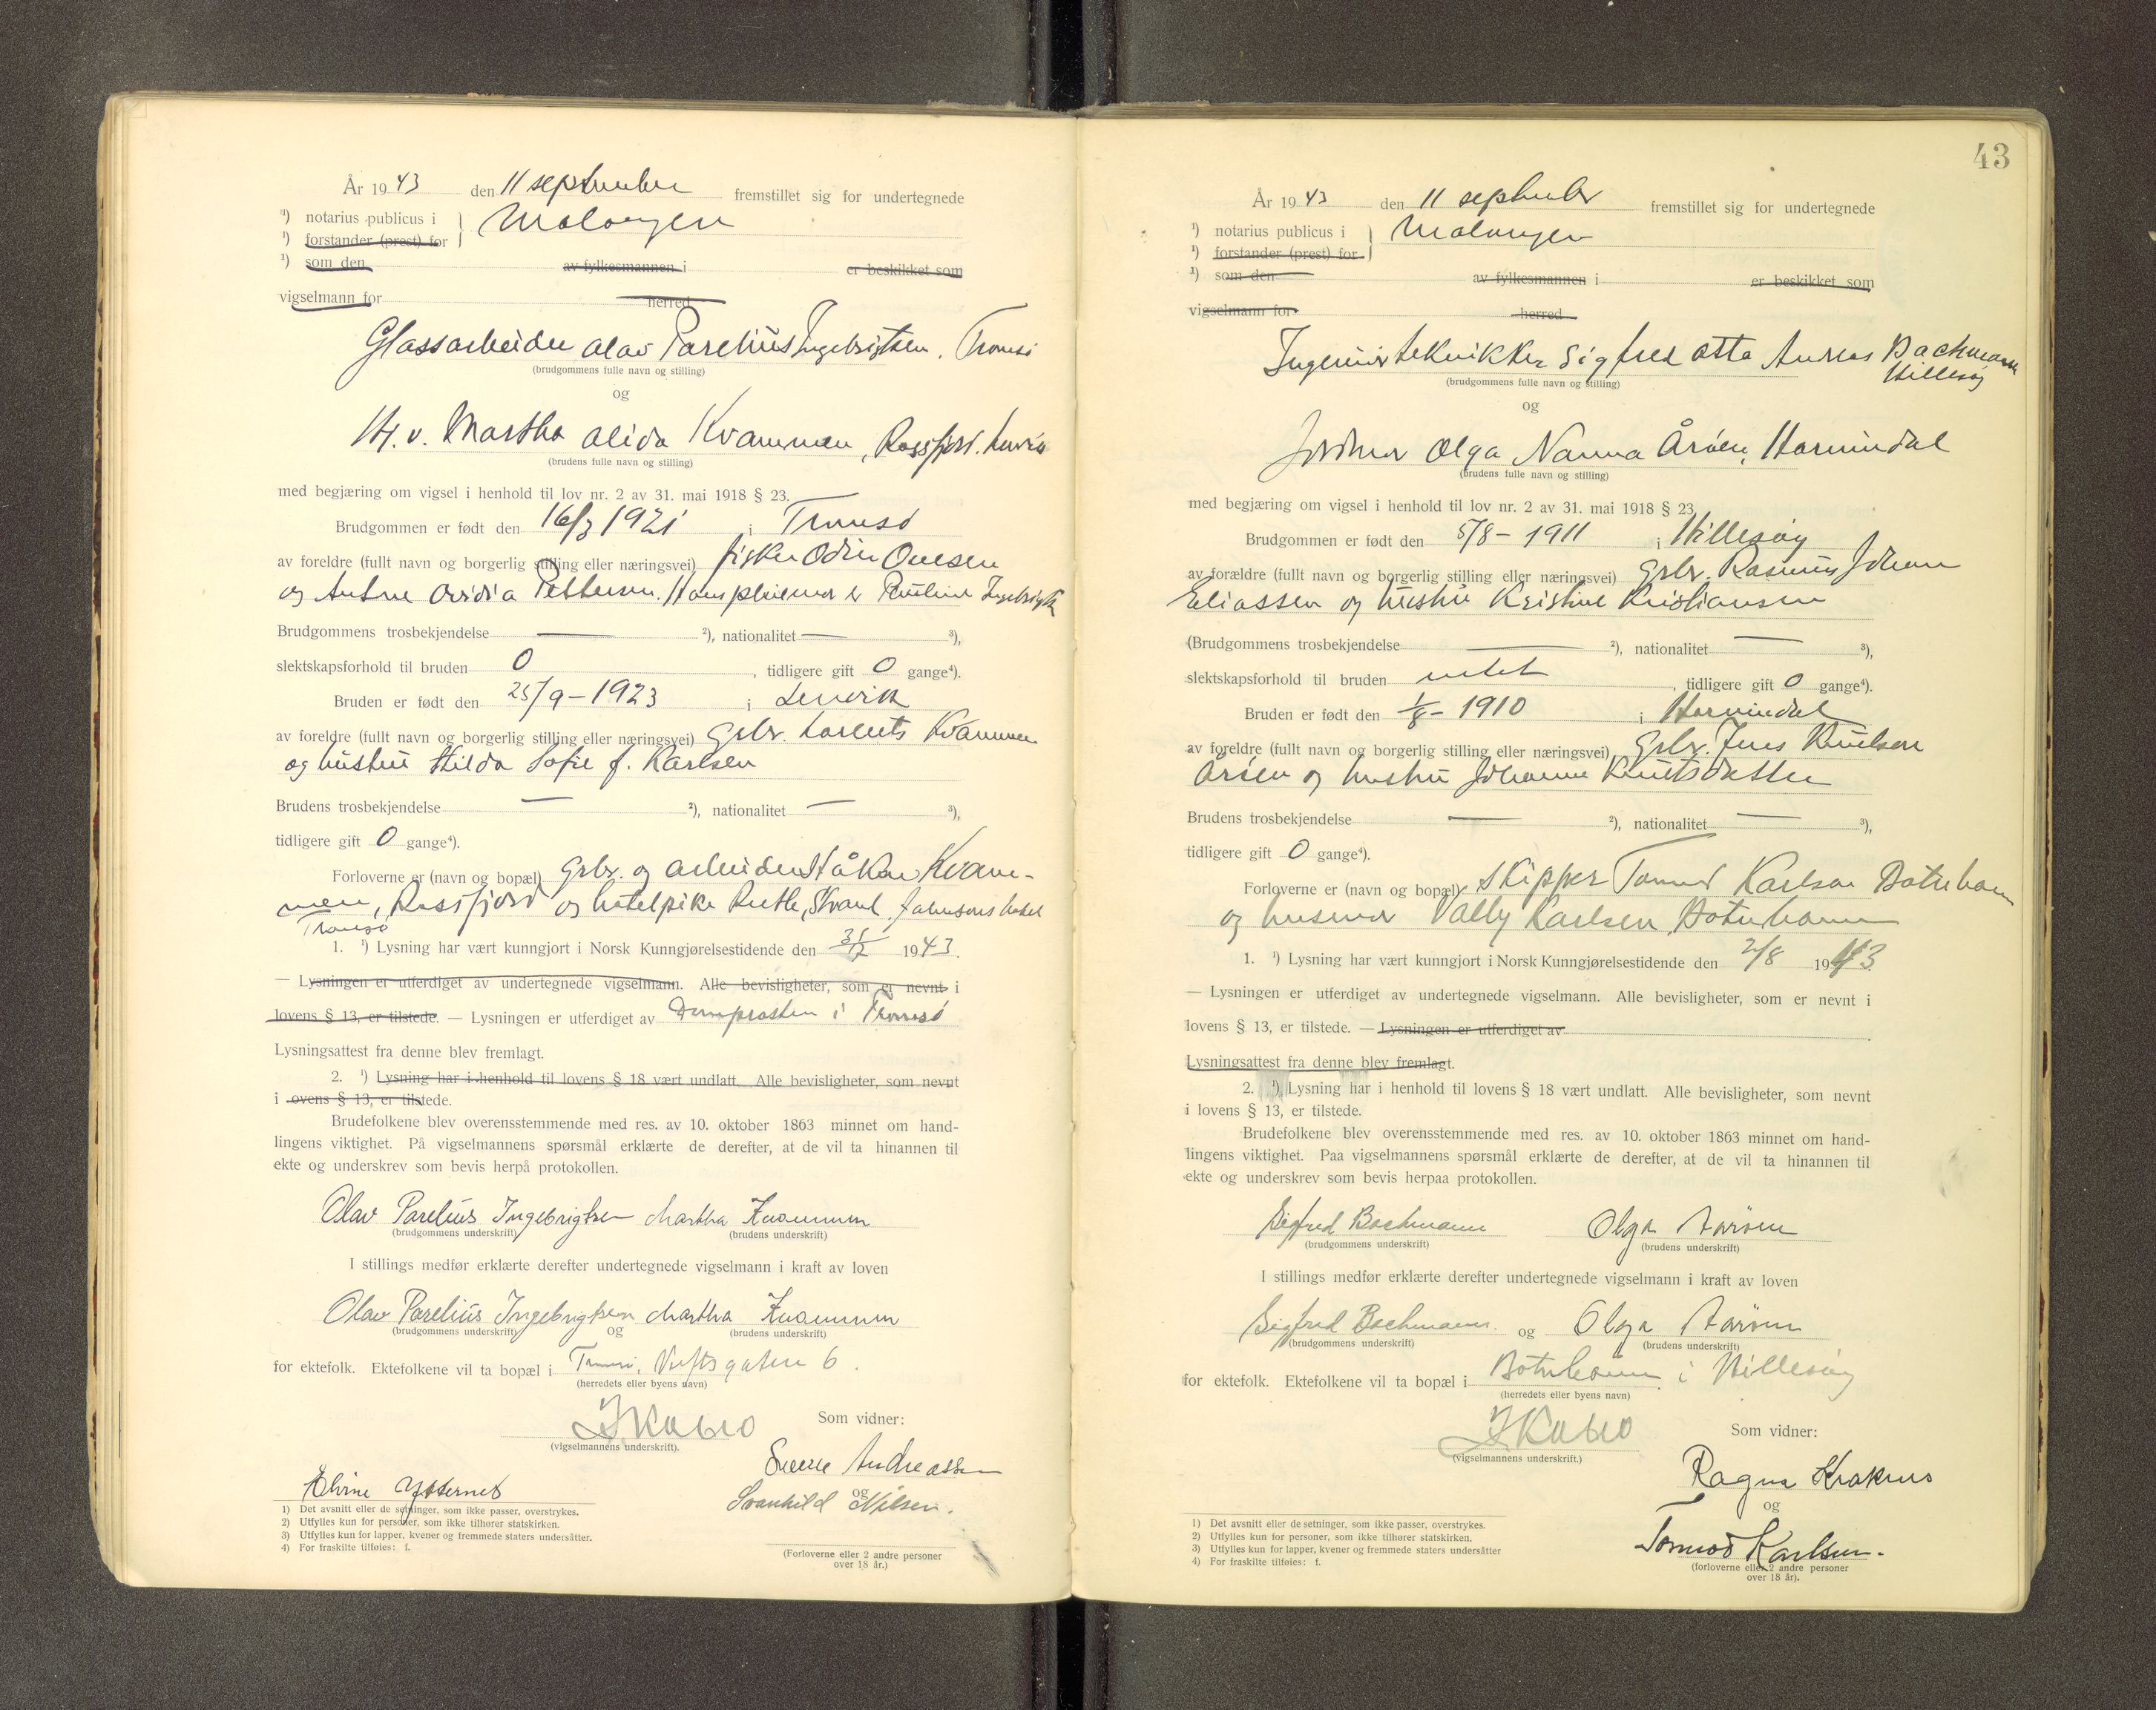 År 1943 den 11 september fremstillet sig for undertegnede
¹) notarius publicus i Malangen
¹) forstander (prest) for
¹) som den av fylkesmannen i er beskikket som
vigselmann for herred
Glassarbeider Olav Parelius Ingebrigtsen, Tromsø
(brudgommens fulle navn og stilling)
og
Martha Alida Kvammen, Rossfjord, Lenvik
(brudens fulle navn og stilling)
med begjæring om vigsel i henhold til lov nr. 2 av 31. mai 1918 § 23.
Brudgommen er født den 16/3 1921 i Tromsø
av foreldre (fullt navn og borgerlig stilling eller næringsvei) fisker Odin Ovesen
og Ovidia Pettersen. Hans pleiemor er Pauline Ingebrigts
Brudgommens trosbekjendelse — ²), nationalitet — ³),
slektskapsforhold til bruden 0, tidligere gift 0 gange⁴).
Bruden er født den 25/9 - 1923 i Lenvik
av foreldre (fullt navn og borgerlig stilling eller næringsvei) Gbr. Lorents Kvammen
og hustru Hilda Sofie f. Karlsen
Brudens trosbekjendelse — ²), nationalitet — ³),
tidligere gift 0 gange⁴).
Forloverne er (navn og bopæl) Gbr. og arbeider Håkon Kvam-
men, Rossfjord og hotelpike Ruth Strand, Johnsons hotel
Tromsø
1. ¹) Lysning har vært kunngjort i Norsk Kunngjørelsestidende den 1943.
— Lysningen er utferdiget av undertegnede vigselmann. Alle bevisligheter, som er nevnt i
lovens § 13, er tilstede. — Lysningen er utferdiget av Domprosten i Tromsø
Lysningsattest fra denne blev fremlagt.
2. ¹) Lysning har i henhold til lovens § 18 vært undlatt. Alle bevisligheter, som nevnt
i lovens § 13, er tilstede.
Brudefolkene blev overensstemmende med res. av 10. oktober 1863 minnet om hand-
lingens viktighet. På vigselmannens spørsmål erklærte de derefter, at de vil ta hinannen til
ekte og underskrev som bevis herpå protokollen.
Olav Parelius Ingebrigtsen Martha Kvammen
(brudgommens underskrift) (brudens underskrift)
I stillings medfør erklærte derefter undertegnede vigselmann i kraft av loven
Olav Parelius Ingebrigtsen Martha Kvammen
(brudgommens underskrift) og (brudens underskrift)
for ektefolk. Ektefolkene vil ta bopæl i Tromsø, Vestgaten 6.
(herredets eller byens navn)
Som vidner:
(vigselmannens underskrift).
Sverre Andreassen
Elvine Ytternes og
Svanhild Nilsen.
1) Det avsnitt eller de setninger, som ikke passer, overstrykes.
2) Utfylles kun for personer, som ikke tilhører statskirken.
3) Utfylles kun for lapper, kvener og fremmede staters undersåtter.
4) For fraskilte tilføies: f.
(Forloverne eller 2 andre personer
over 18 år.)
43
År 1943 den 11 september fremstillet sig for undertegnede
¹) notarius publicus i Malangen
¹) forstander (prest) for
¹) som den av fylkesmannen i er beskikket som
vigselmann for herred
Ingeniørtekniker Sigfred Otto Andreas Bachmann
Hillesøy
(brudgommens fulle navn og stilling)
og
Jordmor Olga Nanna Årøen, Hornindal
(brudens fulle navn og stilling)
med begjæring om vigsel i henhold til lov nr. 2 av 31. mai 1918 § 23
Brudgommen er født den 5/8 - 1911 i Hillesøy
av forældre (fullt navn og borgerlig stilling eller næringsvei) Gbr. Rasmus Johan
Eliassen og hustru Kristine Kristiansen
(Brudgommens trosbekjendelse — ²), nationalitet — ³),
slektskapsforhold til bruden intet, tidligere gift 0 gange⁴).
Bruden er født den 1/8 - 1910 i Hornindal
av foreldre (fullt navn og borgerlig stilling eller næringsvei) Gbr. Jens Knutsen
Årøen og hustru Johanne Knutsdatter
Brudens trosbekjendelse — ²), nationalitet — ³),
tidligere gift 0 gange⁴).
Forloverne er (navn og bopæl) Skipper Tormod Karlsen Botnhamn
og husmor Valby Karlsen, Botnhamn
1. ¹) Lysning har vært kunngjort i Norsk Kunngjørelsestidende den 2/8 1943
— Lysningen er utferdiget av undertegnede vigselmann. Alle bevisligheter, som er nevnt i
lovens § 13, er tilstede. — Lysningen er utferdiget av
Lysningsattest fra denne blev fremlagt.
2. ¹) Lysning har i henhold til lovens § 18 vært undlatt. Alle bevisligheter, som nevnt
i lovens § 13, er tilstede.
Brudefolkene blev overensstemmende med res. av 10. oktober 1863 minnet om hand-
lingens viktighet. Paa vigselmannens spørsmål erklærte de derefter, at de vil ta hinannen til
ekte og underskrev som bevis herpaa protokollen.
Sigfred Bachmann Olga Aarøen
(brudgommens underskrift) (brudens underskrift)
I stillings medfør erklærte derefter undertegnede vigselmann i kraft av loven
Sigfred Bachmann og Olga Aarøen
(brudgommens underskrift) (brudens underskrift)
for ektefolk. Ektefolkene vil ta bopæl i Botnhamn i Hillesøy
(herredets eller byens navn)
Som vidner:
(vigselmannens underskrift.)
Ragna Krakenes
og
Tormod Karlsen.
(forloverne eller 2 andre personer
over 18 år).
1) Det avsnitt eller de setninger, som ikke passer, overstrykes.
2) Utfylles kun for personer, som ikke tilhører statskirken.
3) Utfylles kun for lapper, kvener og fremmede staters undersåtter
4) For fraskilte tilføies: f.